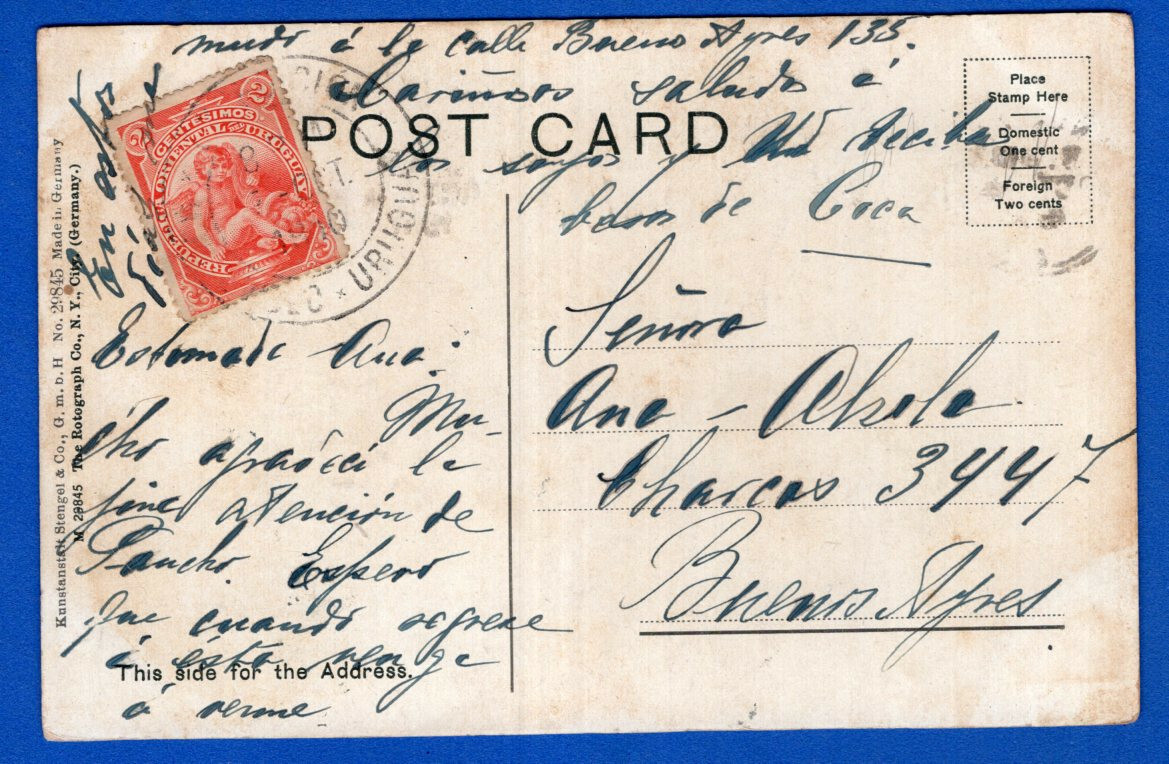 mudo á la calle Bueno Ayres 135.
Cariñosos saludos á
los suyos y Ud reciba
besos de Coca
POST CARD
Place
Stamp Here
Domestic
One cent
Foreign
Two cents
2
CENTÉSIMOS
REPUBLICA ORIENTAL DEL URUGUAY
URUGUAY
En estos
días me
Kunstanstalt Stengel & Co., G. m. b. H No. 29845 Made in Germany
M 29845 The Rotograph Co., N. Y., City. (Germany.)
Estimada Ana:
Mu-
cho agradecí la
fina atención de
Pancho. Espero
que cuando regrese
á ésta venga
á verme.
This side for the Address.
Señora
Ana - Alsola
Charcas 3447
Buenos Ayres